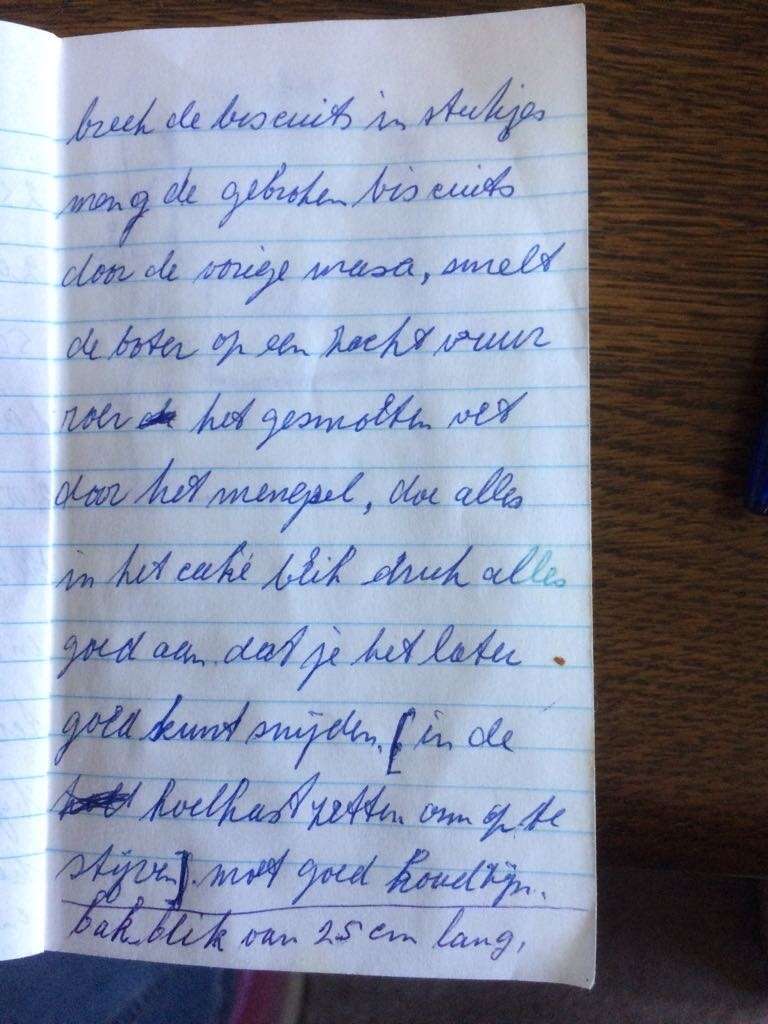 breek de biscuits in stukjes
meng de gebroken biscuits
door de vorige massa, smelt
de boter op een zacht vuur
roer het gesmolten vet
door het mengsel, doe alles
in het caké blik druk alles
goed aan dat je het later
goed kunt snijden. [ in de
koelkast zetten om op te
stijven ]. moet goed koud zijn.
bak blik van 25 cm lang,